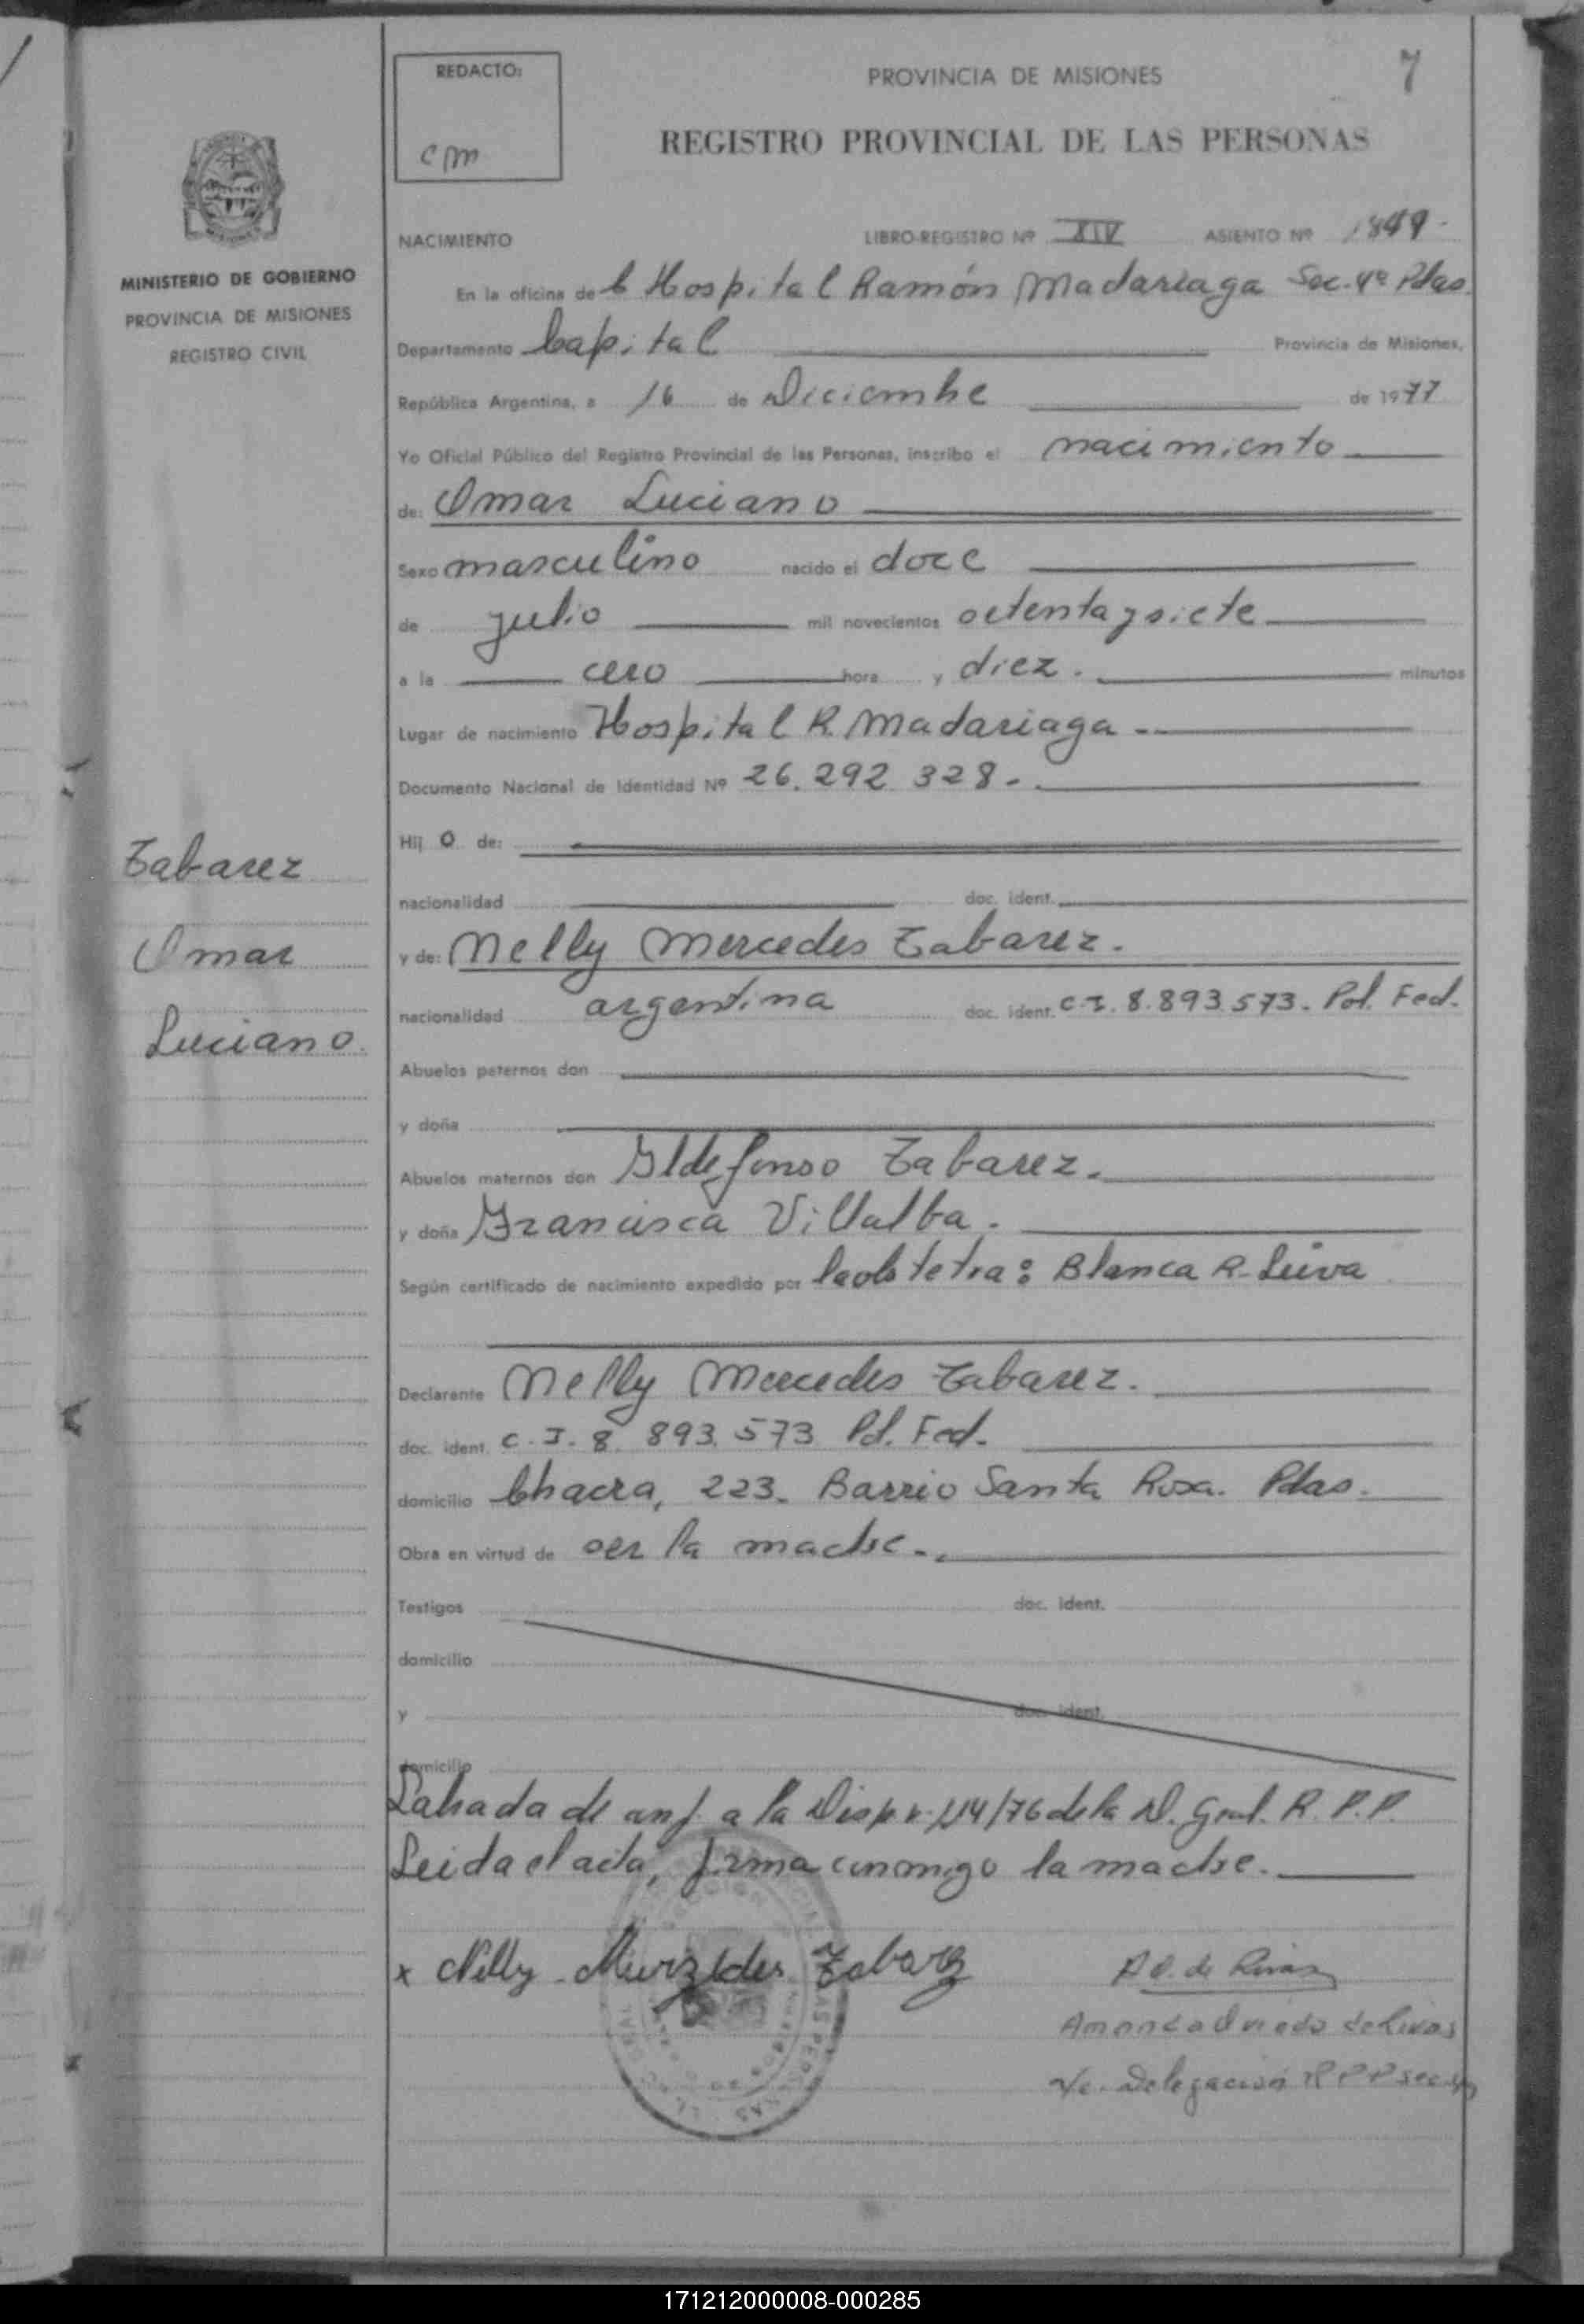 7
REDACTO:
cm
PROVINCIA DE MISIONES
REGISTRO PROVINCIAL DE LAS PERSONAS
MINISTERIO DE GOBIERNO
PROVINCIA DE MISIONES
REGISTRO CIVIL
Tabarez
Omar
Luciano.
NACIMIENTO LIBRO-REGISTRO Nº XIV ASIENTO Nº 1849-
En la oficina de Hospital Ramón Madariaga Sec. 4ª Pdas.
Departamento Capital Provincia de Misiones,
República Argentina, a 16 de Diciembre de 1977
Yo Oficial Público del Registro Provincial de las Personas, inscribo el nacimiento
de: Omar Luciano
Sexo masculino nacido el doce
de julio mil novecientos setenta y siete
a la cero hora y diez. minutos
Lugar de nacimiento Hospital R. Madariaga -
Documento Nacional de Identidad Nº 26.292.328-.
Hij o de:
nacionalidad doc. ident.
y de: Nelly Mercedes Tabarez.
nacionalidad argentina doc. ident. C.I. 8.893.573. Pol. Fed.
Abuelos paternos don
y doña
Abuelos maternos don Ildefonso Tabarez.
y doña Francisca Villalba.
Según certificado de nacimiento expedido por la obstetra: Blanca R. Leiva
Declarante Nelly Mercedes Tabarez.
doc. ident. C.I. 8.893.573 Pol. Fed.
domicilio Chacra, 223. Barrio Santa Rosa. Pdas.
Obra en virtud de ser la madre.
Testigos doc. ident.
domicilio
y doc. ident.
domicilio
Labrada de conf. a la Disp. n. 114/76 de la D. Gral. R.P.P.
Leida el acta, firma conmigo la madre.
x Nelly Mercedes Tabarez
A O. de Rivas
Amanda Oviedo de Rivas
Delegación R P P sec.
171212000008-000285